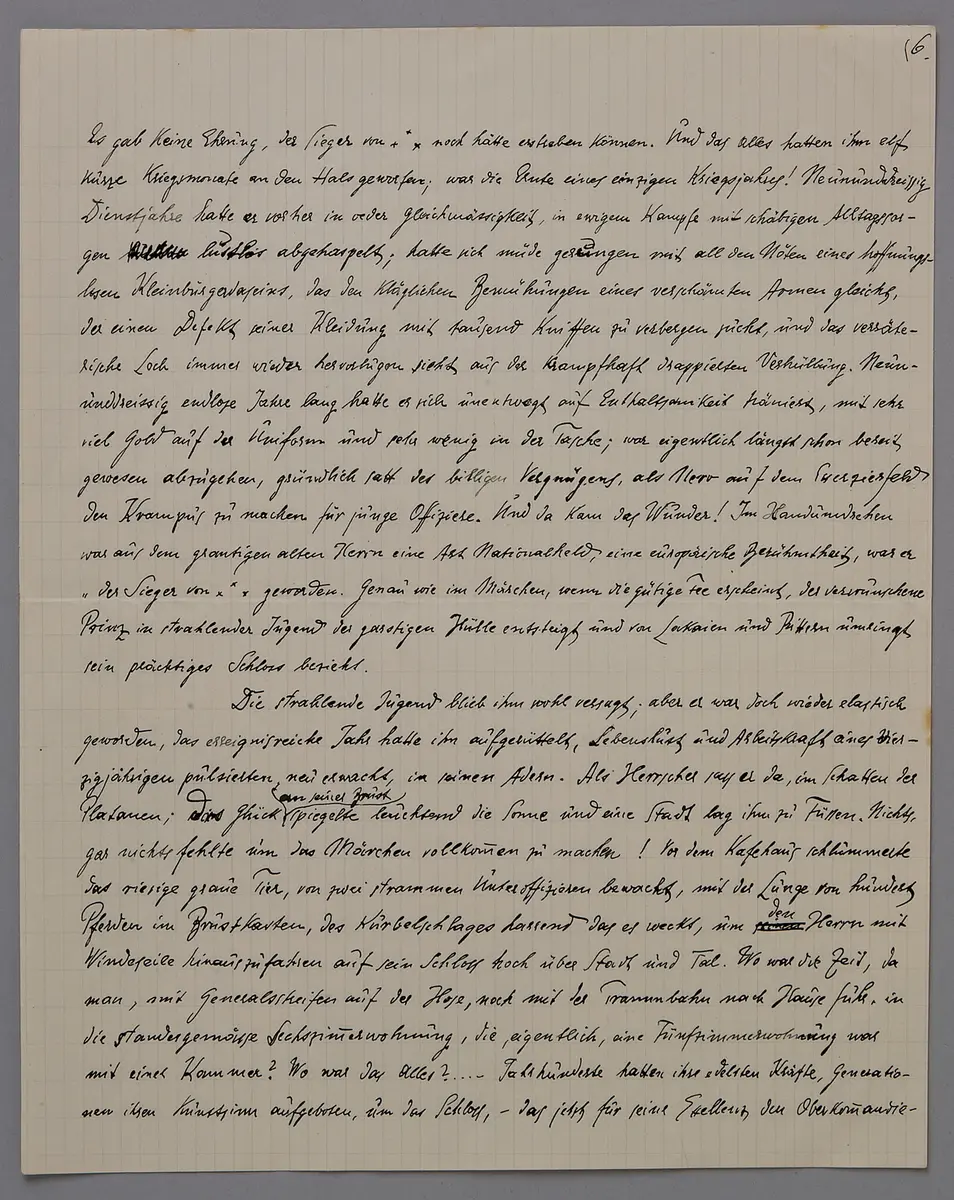 (6.
Es gab keine Ehrung, der Sieger von * * * noch hätte erstreben können. Und das alles hatten ihm elf
kurze Kriegsmonate an den Hals geworfen; war die Ernte eines einzigen Kriegsjahres! Neununddreissig
Dienstjahre hatte er vorher in oeder Gleichmässigkeit, in ewigem Kampfe mit schäbigen Alltagssor-
gen lustlos abgehaspelt; hatte sich müde gerungen mit all den Nöten eines hoffnungs-
losen Kleinbürgerdaseins, das den kläglichen Bemühungen eines verschämten Armen gleicht,
der einen Defekt seiner Kleidung mit tausend Kniffen zu verbergen sucht, und das verräte-
rische Loch immer wieder hervorlugen sieht aus der krampfhaft drappierten Verhüllung. Neun-
unddreissig endlose Jahre lang hatte er sich unentwegt auf Enthaltsamkeit träniert, mit sehr
viel Gold auf der Uniform und sehr wenig in der Tasche; war eigentlich längst schon bereit
gewesen abzugehen, gründlich satt des billigen Vergnügens, als Nero auf dem Exerzierfeld
den Krampus zu machen für junge Offiziere. Und da kam das Wunder! Im Handumdrehen
war aus dem grantigen alten Herrn eine Art Nationalheld, eine europäische Berühmtheit, war er
„ der Sieger von * * * geworden. Genau wie im Märchen, wenn die gütige Fee erscheint, der verwunschene
Prinz in strahlender Jugend der garstigen Hülle entsteigt und von Lakaien und Rittern umringt
sein prächtiges Schloss bezieht.
Die strahlende Jugend blieb ihm wohl versagt; aber er war doch wieder elastisch
geworden, das ereignisreiche Jahr hatte ihn aufgerüttelt, Lebenslust und Arbeitskraft eines Vier-
zigjährigen pulsierten, neu erwacht, in seinen Adern. Als Herrscher sass er da, im Schatten der
Platanen; das Glück (an seiner Brust) spiegelte leuchtend die Sonne und eine Stadt lag ihm zu Füssen. Nichts,
gar nichts fehlte um das Märchen vollkom̅en zu machen ! Vor dem Kafehaus schlummerte
das riesige graue Tier, von zwei strammen Unteroffizieren bewacht, mit der Lunge von hundert
Pferden im Brustkasten, des Kurbelschlages harrend das es weckt, um den Herrn mit
Windeseile hinauszufahren auf sein Schloss hoch über Stadt und Tal. Wo war die Zeit, da
man, mit Generalstreifen auf der Hose, noch mit der Trammbahn nach Hause fuhr, in
die standesgemässe Sechszim̅erwohnung, die, eigentlich, eine Fünfzimmerwohnung war
mit einer Kammer? Wo war das alles?.... – Jahrhunderte hatten ihre edelsten Kräfte, Generatio-
nen ihren Kunstsinn aufgeboten, um das Schloss, – das jetzt für seine Exellenz den Oberkom̅andie-